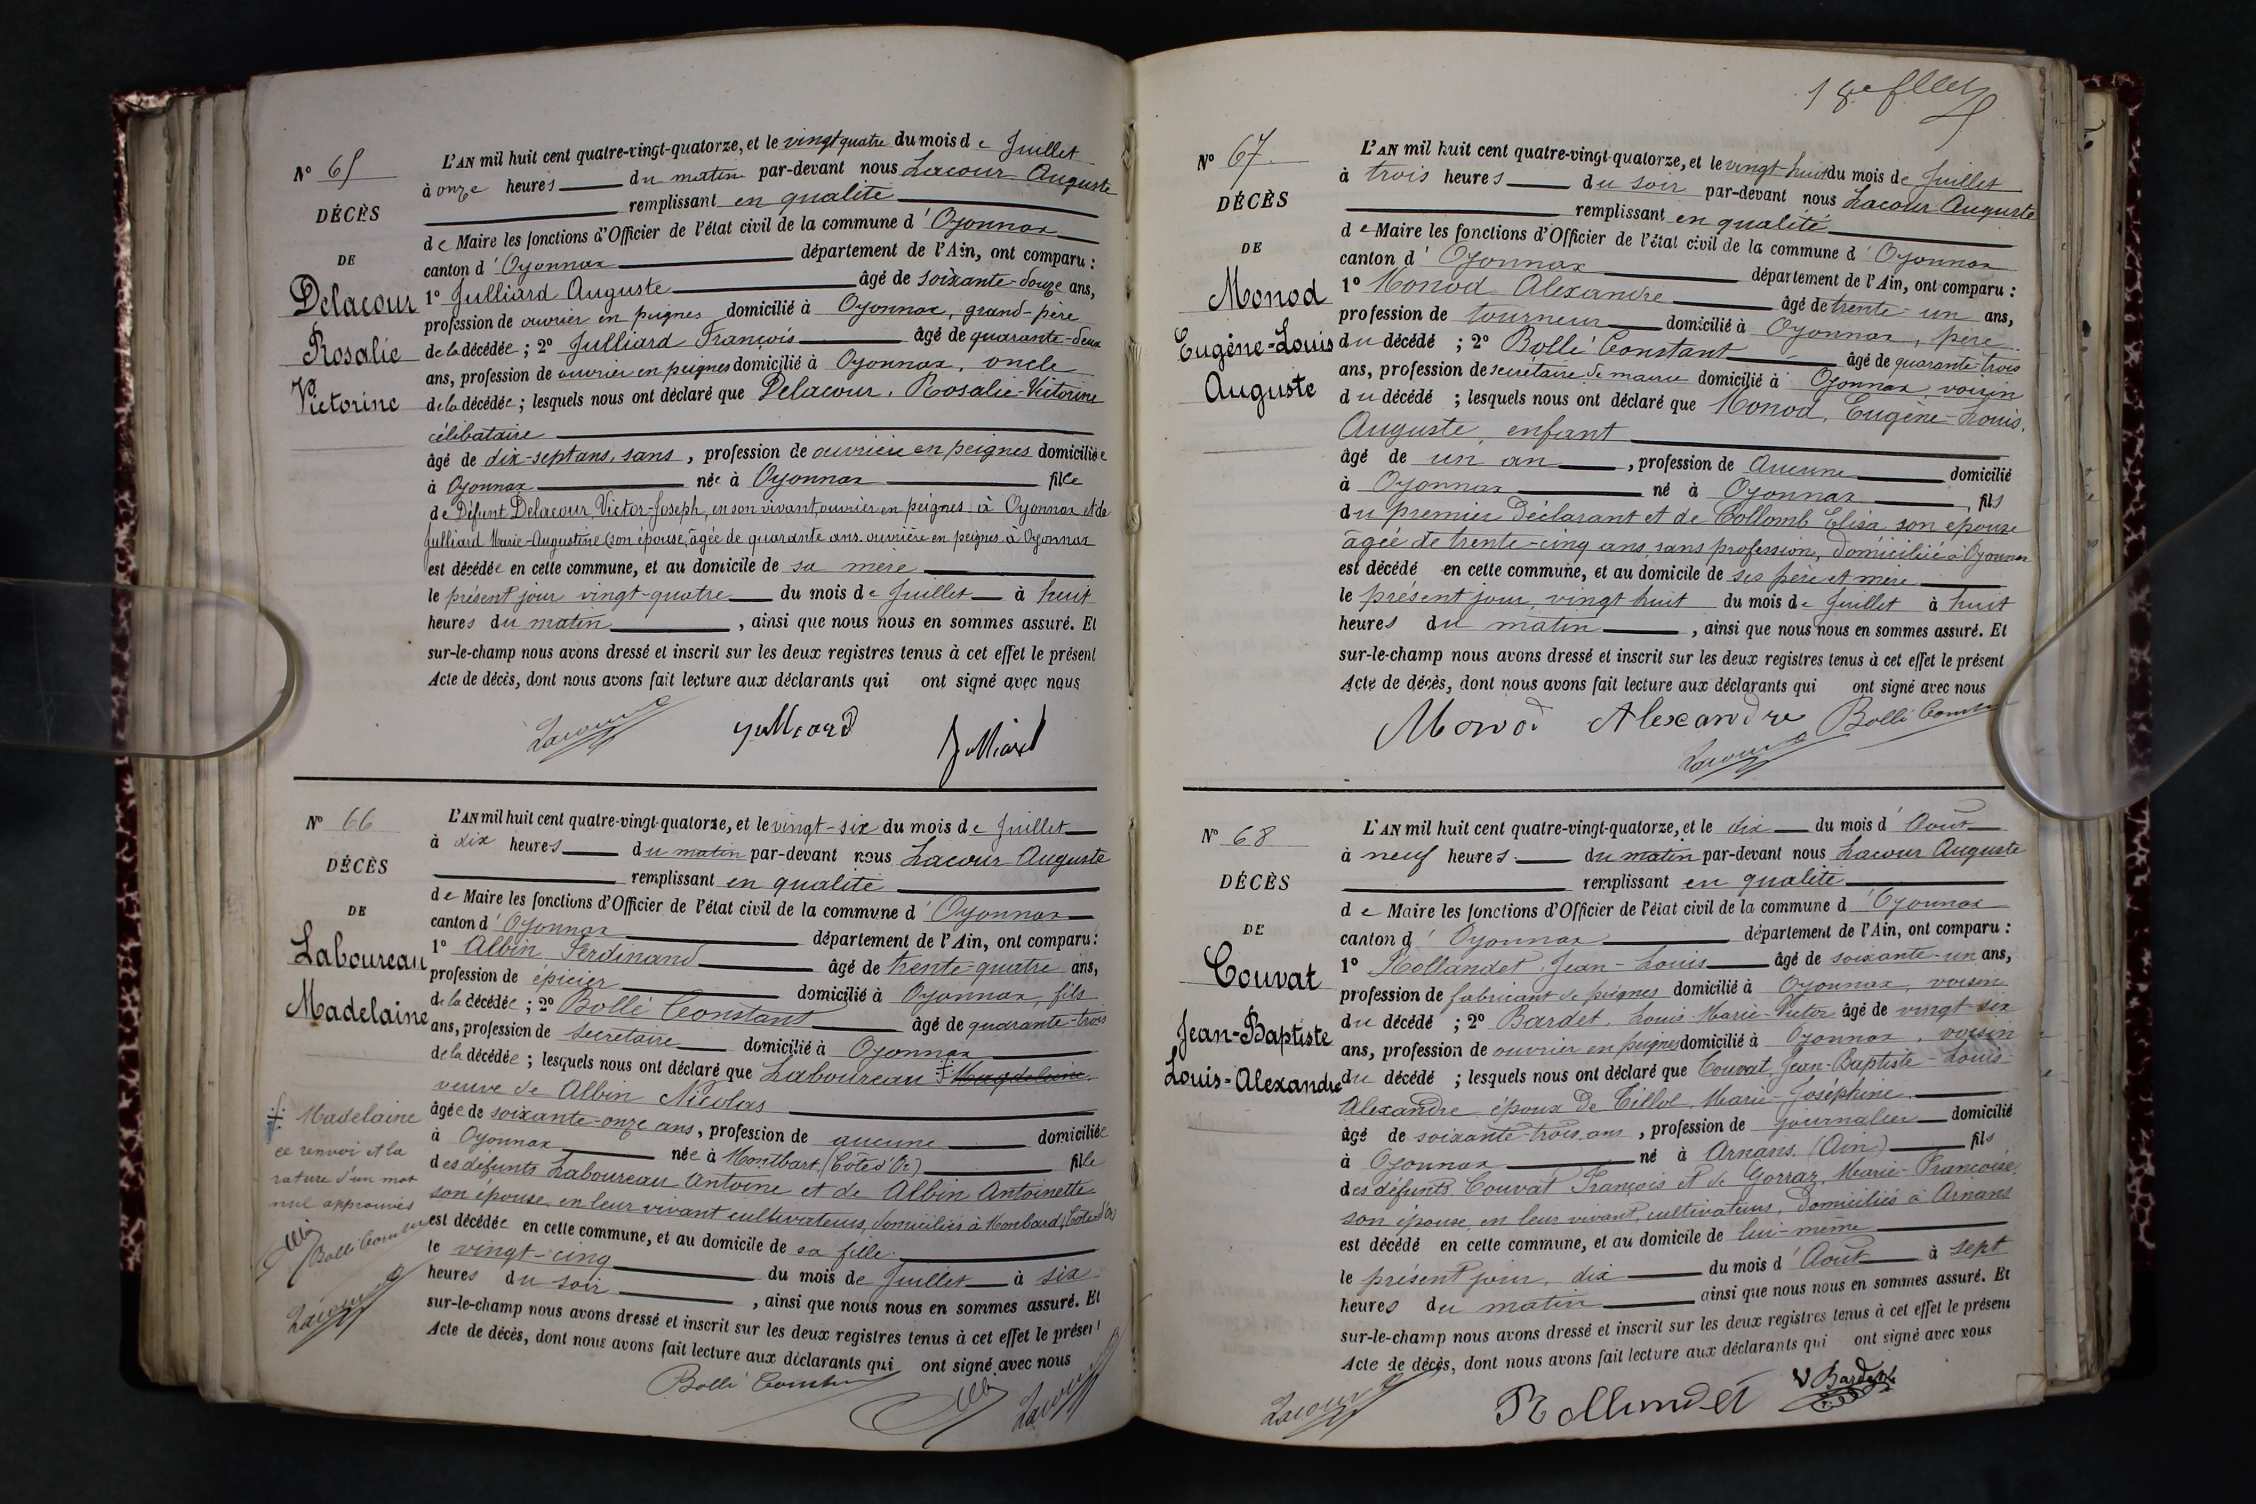 Nº 65
DÉCÈS
DE
Delacour
Rosalie
Victorine
L'AN mil huit cent quatre-vingt-quatorze, et le vingt quatre du mois de Juillet
à onze heures du matin par-devant nous Lacour Auguste
remplissant en qualité
de Maire les fonctions d'Officier de l'état civil de la commune d'Oyonnax
canton d'Oyonnax département de l'Ain, ont comparu :
1º Julliard Auguste âgé de soixante-douze ans,
profession de ouvrier en peignes domicilié à Oyonnax, grand-père
de la décédée ; 2º Julliard François âgé de quarante-deux
ans, profession de ouvrier en peignes domicilié à Oyonnax, oncle
de la décédée ; lesquels nous ont déclaré que Delacour, Rosalie-Victorine
célibataire
âgé de dix-sept ans, sans, profession de ouvrière en peignes domiciliée
à Oyonnax née à Oyonnax fille
de Défunt Delacour Victor-Joseph, en son vivant, ouvrier en peignes à Oyonnax et de
Julliard Marie-Augustine (son épouse, âgée de quarante ans. ouvrière en peignes à Oyonnax
est décédée en cette commune, et au domicile de sa mère
le présent jour vingt-quatre du mois de Juillet à huit
heures du matin, ainsi que nous nous en sommes assuré. Et
sur-le-champ nous avons dressé et inscrit sur les deux registres tenus à cet effet le présent
Acte de décès, dont nous avons fait lecture aux déclarants qui ont signé avec nous
Lacour Julliard Julliard
Nº 66
DÉCÈS
DE
Laboureau
Madelaine
L'AN mil huit cent quatre-vingt-quatorze, et le vingt-six du mois de Juillet
à dix heures du matin par-devant nous Lacour Auguste
remplissant en qualité
de Maire les fonctions d'Officier de l'état civil de la commune d'Oyonnax
canton d'Oyonnax département de l'Ain, ont comparu :
1º Albin Ferdinand âgé de trente-quatre ans,
profession de épicier domicilié à Oyonnax, fils
de la décédée ; 2º Bollé Constant âgé de quarante-trois
ans, profession de secrétaire domicilié à Oyonnax
de la décédée ; lesquels nous ont déclaré que Laboureau ‡ Magdelaine
veuve de Albin Nicolas
âgée de soixante-onze ans, profession de aucune domiciliée
à Oyonnax née à Montbart (Côte d'Or) fille
des défunts Laboureau Antoine et de Albin Antoinette
son épouse, en leur vivant cultivateurs, domiciliés à Montbard (Côte d'Or)
est décédée en cette commune, et au domicile de sa fille
le vingt-cinq du mois de Juillet à six
heures du soir, ainsi que nous nous en sommes assuré. Et
sur-le-champ nous avons dressé et inscrit sur les deux registres tenus à cet effet le présent
Acte de décès, dont nous avons fait lecture aux déclarants qui ont signé avec nous
‡ Madelaine
ce renvoi et la
rature d'un mot
nul approuvés
Bollé Constant
Lacour
Bollé Constant Lacour
18e fllet
Nº 67
DÉCÈS
DE
Monod
Eugène-Louis
Auguste
L'AN mil huit cent quatre-vingt-quatorze, et le vingt huit du mois de Juillet
à trois heures du soir par-devant nous Lacour Auguste
remplissant en qualité
de Maire les fonctions d'Officier de l'état civil de la commune d'Oyonnax
canton d'Oyonnax département de l'Ain, ont comparu :
1º Monod Alexandre âgé de trente-un ans,
profession de tourneur domicilié à Oyonnax, père
du décédé ; 2º Bollé Constant âgé de quarante-trois
ans, profession de secrétaire de mairie domicilié à Oyonnax, voisin
du décédé ; lesquels nous ont déclaré que Monod, Eugène-Louis,
Auguste, enfant
âgé de un an, profession de Aucune domicilié
à Oyonnax né à Oyonnax, fils
du premier Déclarant et de Collomb Elisa son épouse
âgée de trente-cinq ans, sans profession, domiciliée à Oyonnax
est décédé en cette commune, et au domicile de ses père et mère
le présent jour, vingt huit du mois de Juillet à huit
heures du matin, ainsi que nous nous en sommes assuré. Et
sur-le-champ nous avons dressé et inscrit sur les deux registres tenus à cet effet le présent
Acte de décès, dont nous avons fait lecture aux déclarants qui ont signé avec nous
Monod Alexandre Bollé Constant
Lacour
Nº 68
DÉCÈS
DE
Couvat
Jean-Baptiste
Louis-Alexandre
L'AN mil huit cent quatre-vingt-quatorze, et le dix du mois d'Août
à neuf heures du matin par-devant nous Lacour Auguste
remplissant en qualité
de Maire les fonctions d'Officier de l'état civil de la commune d'Oyonnax
canton d'Oyonnax département de l'Ain, ont comparu :
1º Rollandet Jean-Louis âgé de soixante-un ans,
profession de fabricant de peignes domicilié à Oyonnax, voisin
du décédé ; 2º Bardet, Louis-Marie-Victor âgé de vingt-six
ans, profession de ouvrier en peignes domicilié à Oyonnax, voisin
du décédé ; lesquels nous ont déclaré que Couvat, Jean-Baptiste-Louis
Alexandre époux de Tillol Marie-Joséphine
âgé de soixante-trois ans, profession de journalier domicilié
à Oyonnax né à Arnans (Ain) fils
des défunts Couvat François et de Gorraz, Marie-Françoise,
son épouse, en leur vivant, cultivateurs, domiciliés à Arnans
est décédé en cette commune, et au domicile de lui-même
le présent jour, dix du mois d'Août à sept
heures du matin ainsi que nous nous en sommes assuré. Et
sur-le-champ nous avons dressé et inscrit sur les deux registres tenus à cet effet le présent
Acte de décès, dont nous avons fait lecture aux déclarants qui ont signé avec nous
Lacour Rollandet V Bardet